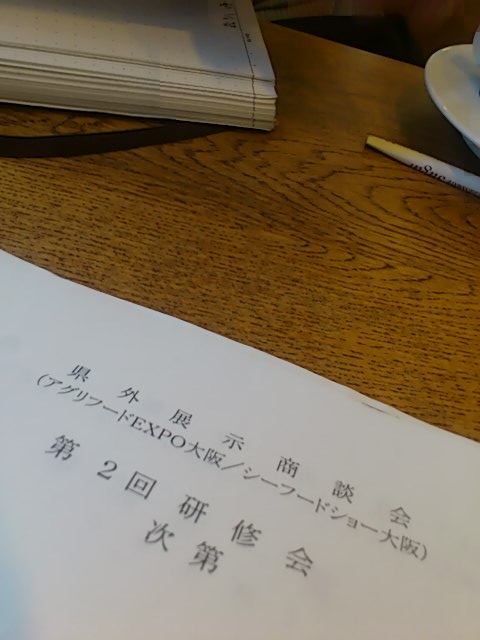 県外展示商談会
(アグリフードEXPO大阪／シーフードショー大阪)
第２回研修会
次第